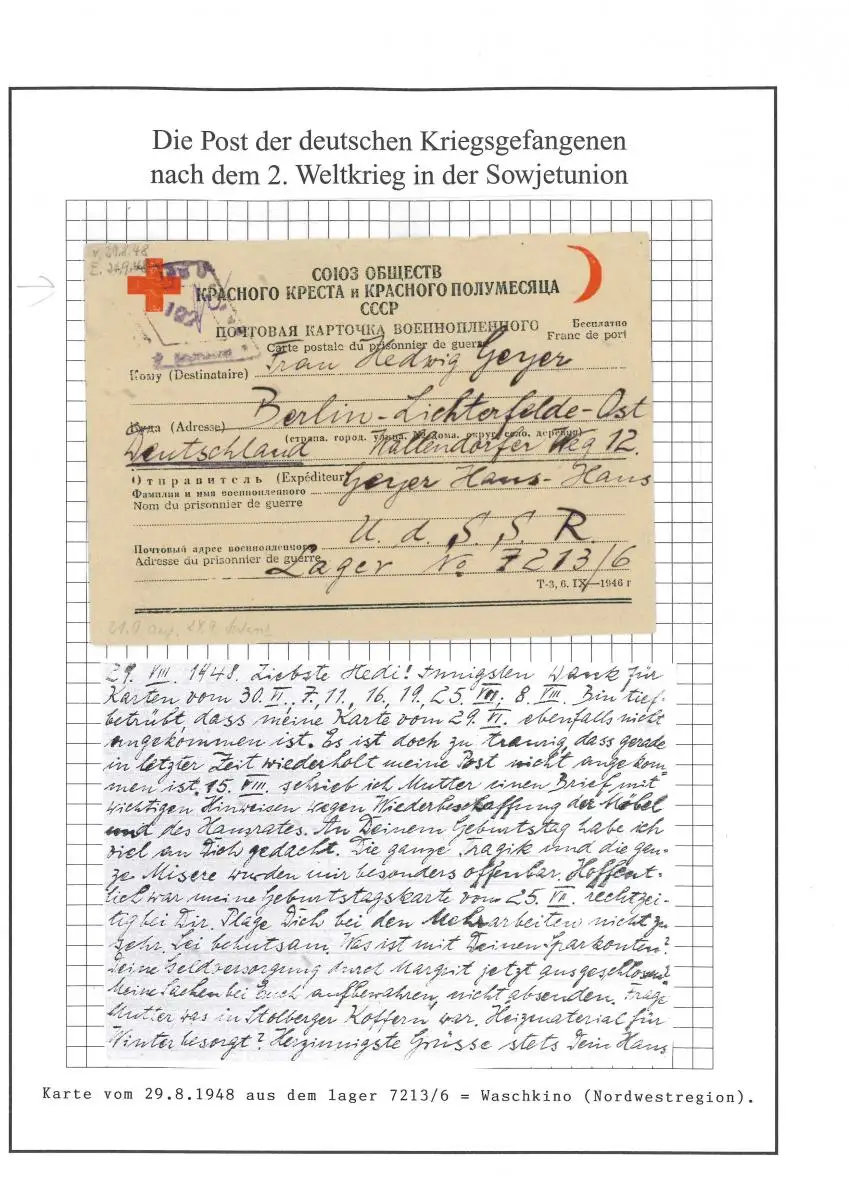 Die Post der deutschen Kriegsgefangenen
nach dem 2. Weltkrieg in der Sowjetunion
v. 29.8.48
E. 24.9.48
СОЮЗ ОБЩЕСТВ
КРАСНОГО КРЕСТА и КРАСНОГО ПОЛУМЕСЯЦА
СССР
ПОЧТОВАЯ КАРТОЧКА ВОЕННОПЛЕННОГО
Carte postale du prisonnier de guerre
Бесплатно
Franc de port
Кому (Destinataire) Frau Hedwig Geyer
Куда (Adresse) Berlin-Lichterfelde-Ost
(страна, город, улица, № дома, округ, село, деревня)
Deutschland Wallendorfer Weg 12.
Отправитель (Expéditeur) Geyer Hans-Hans
Фамилия и имя военнопленного
Nom du prisonnier de guerre
U. d. S. S. R.
Почтовый адрес военнопленного
Adresse du prisonnier de guerre Lager No 7213/6
Т-3, 6. IX—1946 г
29. VIII. 1948. Liebste Hedi! Innigsten Dank für
Karten vom 30. VI., 7., 11., 16., 19., 25. VII., 8. VIII. Bin tief-
betrübt, dass meine Karte vom 29. VI. ebenfalls nicht
angekommen ist. Es ist doch zu traurig, dass gerade
in letzter Zeit wiederholt meine Post nicht angekom-
men ist. 15. VIII. schrieb ich Mutter einen Brief mit
wichtigen Hinweisen wegen Wiederbeschaffung der Möbel
und des Hausrates. An Deinem Geburtstag habe ich
viel an Dich gedacht. Die ganze Tragik und die gan-
ze Misere wurden mir besonders offenbar. Hoffent-
lich war meine Geburtstagskarte vom 25. VII. rechtzei-
tig bei Dir. Plage Dich bei den Mehrarbeiten nicht zu
sehr. Sei behutsam. Was ist mit Deinen Sparkonten?
Deine Geldversorgung durch Margrit jetzt ausgeschlossen?
Meine Sachen bei Euch aufbewahren, nicht absenden. Frage
Mutter was in Stolberger Koffern war. Heizmaterial für
Winter besorgt? Herzinnigste Grüsse stets Dein Hans
Karte vom 29.8.1948 aus dem lager 7213/6 = Waschkino (Nordwestregion).